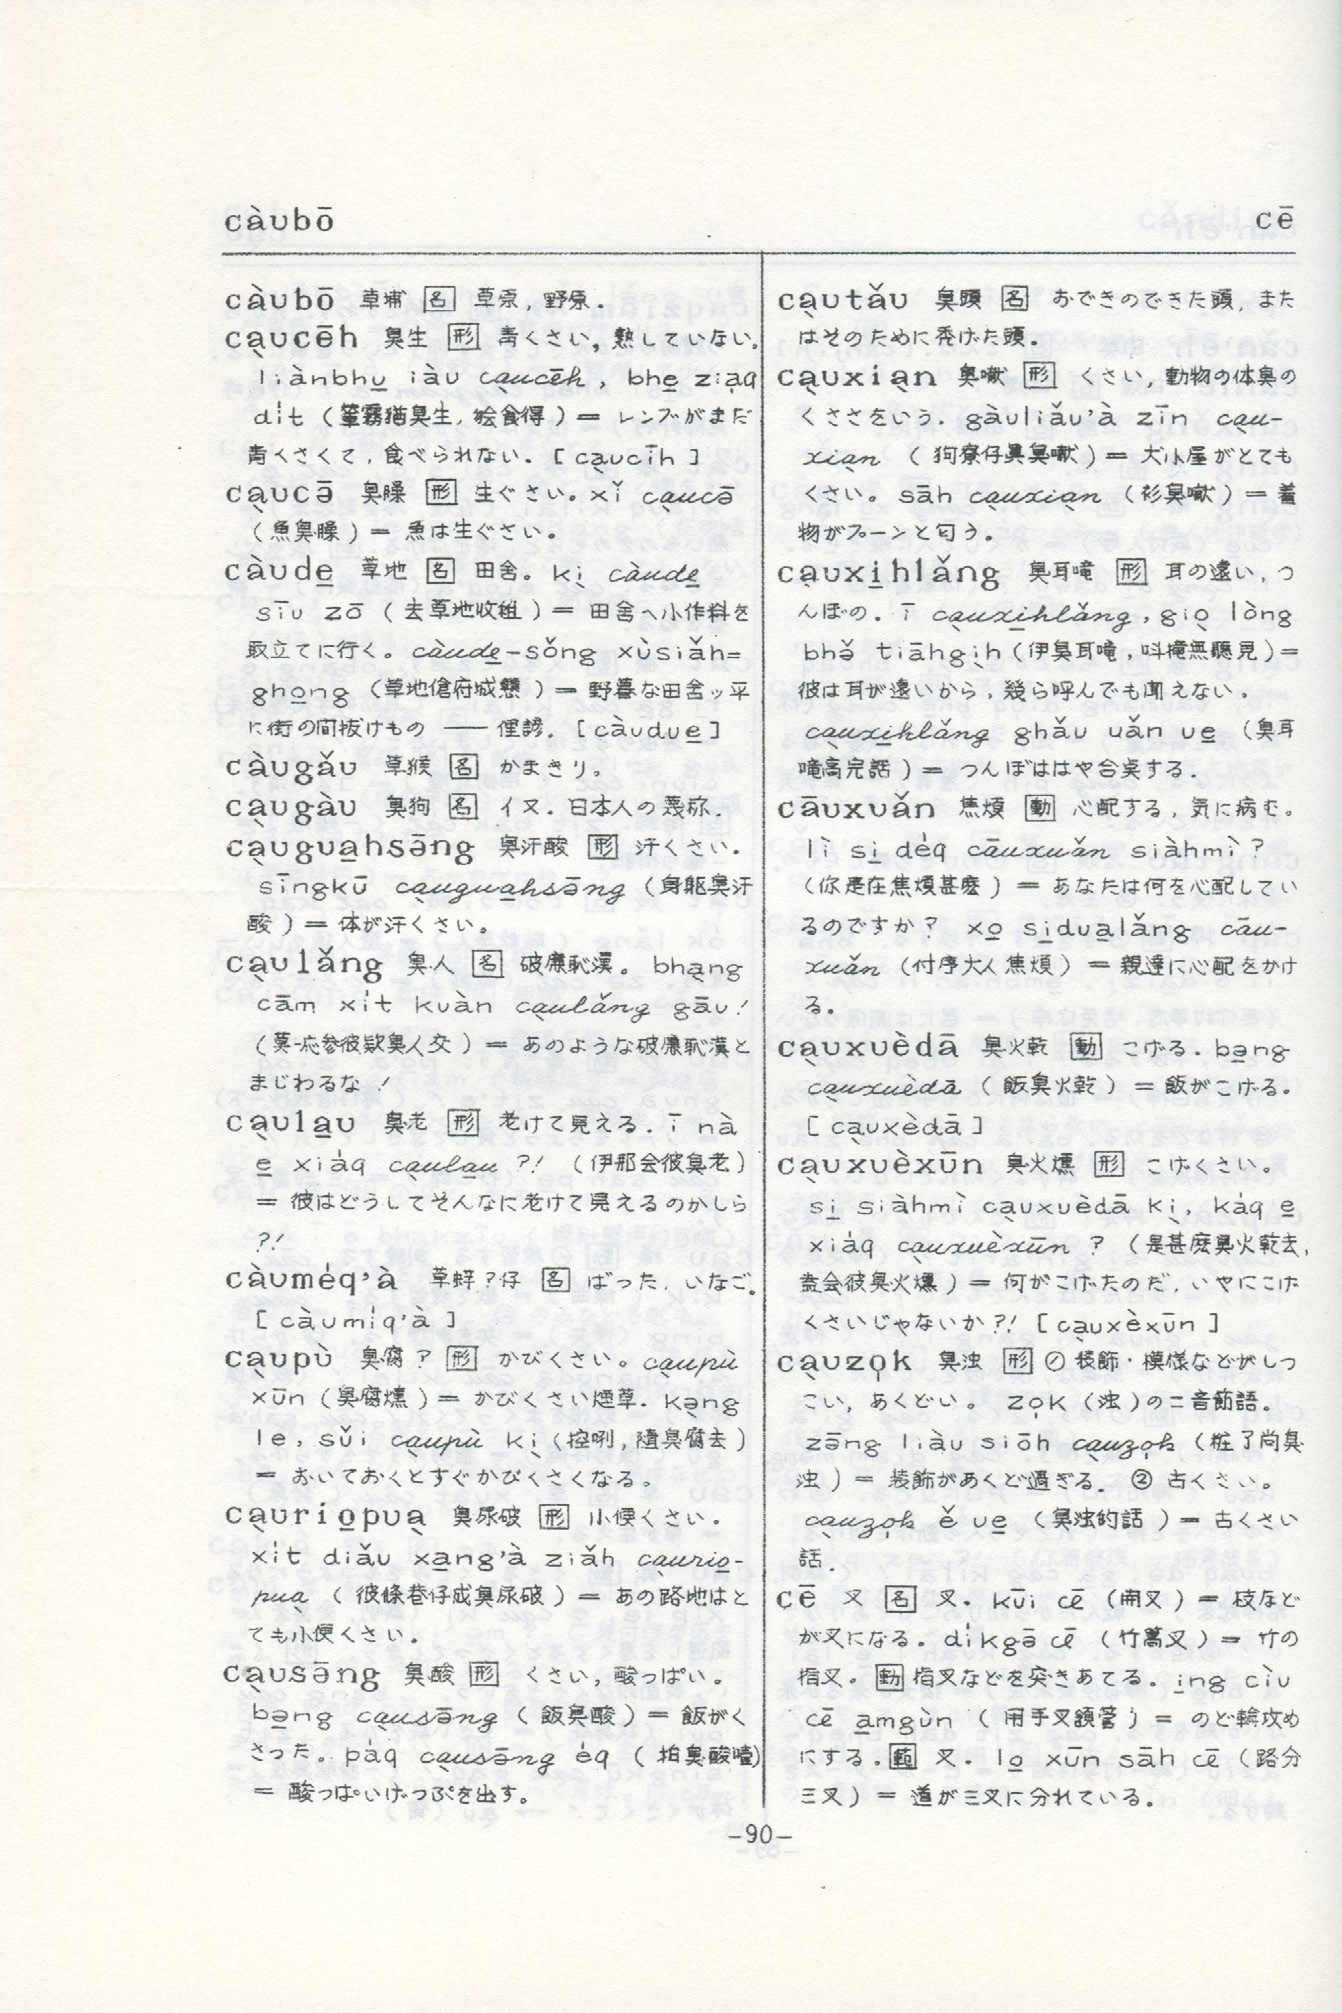 càubō
cē
càubō 草埔 [名] 草原,野原.
ca̖ucēh 臭生 [形] 青くさい,熟していない.
liànbhu̠ iàu ca̖ucēh, bhe̠ zia̖q
di̍t (蓮霧猶臭生,絵食得) = レンブがまだ
青くさくて,食べられない. [ca̖ucīh]
ca̖ucə̄ 臭臊 [形] 生ぐさい。xǐ ca̖ucə̄
(魚臭臊) = 魚は生ぐさい。
càude̠ 草地 [名] 田舎。ki̖ càude̠
sīu zō (去草地收租) = 田舎へ小作料を
取立てに行く。càude̠-sǒng xùsiǎh=
gho̖ng (草地傖府城戇) = 野暮な田舎ッ平
に街の間抜けもの —— 俚諺. [càudue̠]
càugǎu 草猴 [名] かまきり。
ca̖ugàu 臭狗 [名] イヌ.日本人の蔑称.
ca̖ugua̠hsə̄ng 臭汗酸 [形] 汗くさい.
sīngkū ca̖ugua̠hsə̄ng (身躯臭汗
酸) = 体が汗くさい。
ca̖ulǎng 臭人 [名] 破廉恥漢。bha̖ng
cām xi̍t kuàn ca̖ulǎng gāu!
(莫応参彼欵臭人交) = あのような破廉恥漢と
まじわるな!
ca̖ula̠u 臭老 [形] 老けて見える. ī nà
e̠ xia̍q ca̖ula̠u ?! (伊那会彼臭老)
= 彼はどうしてそんなに老けて見えるのかしら
?!
càume̍q'à 草蜢?仔 [名] ばった,いなご.
[càumi̍q'à]
ca̖upù 臭腐? [形] かびくさい。ca̖upù
xūn (臭腐燻) = かびくさい煙草. kə̖ng
le, sǔi ca̖upù ki̖ (控咧,隨臭腐去)
= おいておくとすぐかびくさくなる。
ca̖urio̠pua̖ 臭尿破 [形] 小便くさい.
xi̍t diǎu xa̠ng'à ziǎh ca̖urio̠-
pua̖ (彼條巷仔成臭尿破) = あの路地はと
ても小便くさい.
ca̖usə̄ng 臭酸 [形] くさい,酸っぱい。
bə̠ng ca̖usə̄ng (飯臭酸) = 飯がく
さった。pa̍q ca̖usə̄ng e̍q (拍臭酸噎)
= 酸っぱいげっぷを出す。
ca̖utǎu 臭頭 [名] おできのできた頭,また
はそのために禿げた頭.
ca̖uxia̖n 臭嗽 [形] くさい,動物の体臭の
くささをいう. gàuliǎu'à zīn ca̖u-
xia̖n (狗寮仔真臭嗽) = 犬小屋がとても
くさい。sāh ca̖uxia̖n (衫臭嗽) = 着
物がプーンと匂う。
ca̖uxi̠hlǎng 臭耳聾 [形] 耳の遠い,つ
んぼの. ī ca̖uxi̠hlǎng, gio̖ lòng
bhə̌ tiāhgi̖h (伊臭耳聾,叫攏無聽見) =
彼は耳が遠いから,幾ら呼んでも聞えない.
ca̖uxi̠hlǎng ghǎu uǎn ue̠ (臭耳
聾高完話) = つんぼははや合点する.
cāuxuǎn 焦煩 [動] 心配する,気に病む。
lì si̠ de̍q cāuxuǎn siàhmì ?
(你是在焦煩甚麽) = あなたは何を心配してい
るのですか? xo̠ si̠dua̠lǎng cāu-
xuǎn (付序大人焦煩) = 親達に心配をかけ
る。
ca̖uxuèdā 臭火乾 [動] こげる. bə̠ng
ca̖uxuèdā (飯臭火乾) = 飯がこげる。
[ca̖uxèdā]
ca̖uxuèxūn 臭火燻 [形] こげくさい。
si̠ siàhmì ca̖uxuèdā ki̖, ka̍q e̠
xia̍q ca̖uxuèxūn ? (是甚麽臭火乾去,
盍会彼臭火燻) = 何がこげたのだ,いやにこげ
くさいじゃないか?! [ca̖uxèxūn]
ca̖uzo̖k 臭浊 [形] ① 装飾・模様などがしつ
こい,あくどい。zo̖k (浊)の二音節語。
zə̄ng liàu siōh ca̖uzo̖k (粧了尚臭
浊) = 装飾があくど過ぎる. ② 古くさい。
ca̖uzo̖k ě ue̠ (臭浊的話) = 古くさい
話.
cē 叉 [名] 叉. kūi cē (開叉) = 枝など
が叉になる。di̍kgə̄ cē (竹篙叉) = 竹の
指叉。[動] 指叉などを突きあてる. i̠ng cìu
cē a̠mgùn (用手叉頷菅) = のど輪攻め
にする.[範] 叉. lo̠ xūn sāh cē (路分
三叉) = 道が三叉に分れている.
-90-